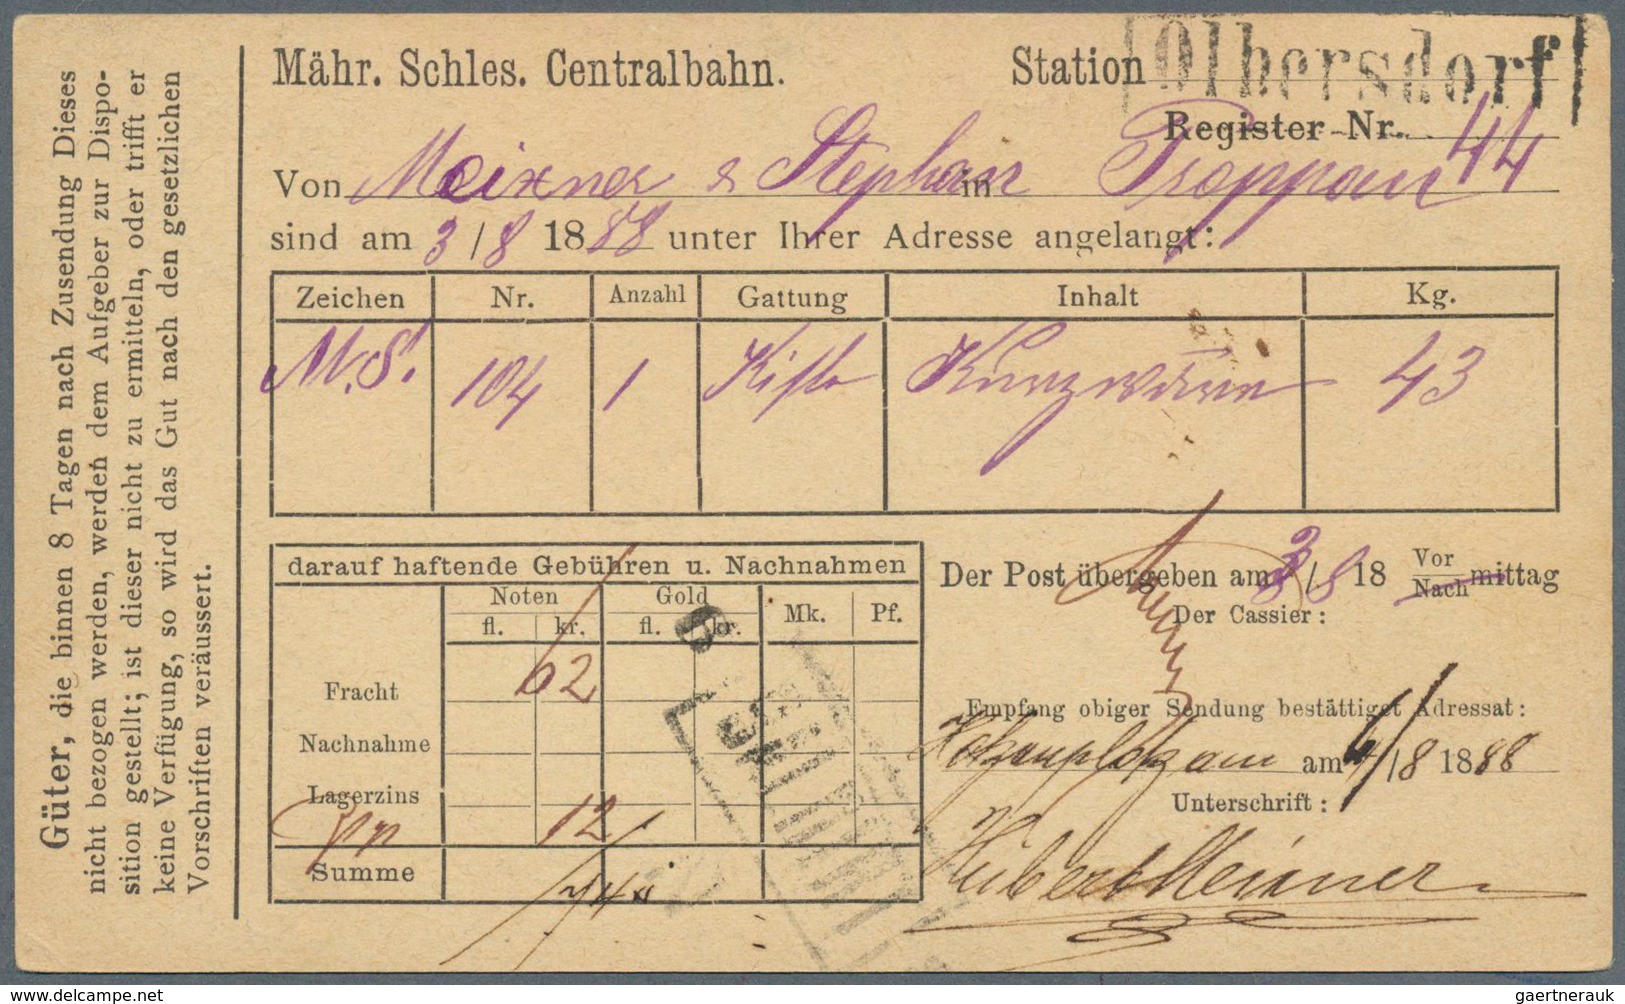 Güter, die binnen 8 Tagen nach Zusendung Dieses
nicht bezogen werden, werden dem Aufgeber zur Dispo-
sition gestellt; ist dieser nicht zu ermitteln, oder trifft er
keine Verfügung, so wird das Gut nach den gesetzlichen
Vorschriften veräussert.
Mähr. Schles. Centralbahn. Station Olbersdorf
Register-Nr. 44
Von Meixner & Stephan in Troppau
sind am 3/8 1888 unter Ihrer Adresse angelangt:
Zeichen Nr. Anzahl Gattung Inhalt Kg.
M.S. 104 1 Kiste Kurzwaren 43
darauf haftende Gebühren u. Nachnahmen
Noten Gold Mk. Pf.
fl. kr. fl. kr.
Fracht 62
Nachnahme
Lagerzins
12
Summe 74
Der Post übergeben am 3/8 18 Vor/Nach mittag
Der Cassier:
Empfang obiger Sendung bestättiget Adressat:
Hotzenplotz am am 4/8 1888
Unterschrift:
Hubert Meixner
gaertnerauk
delcampe.net